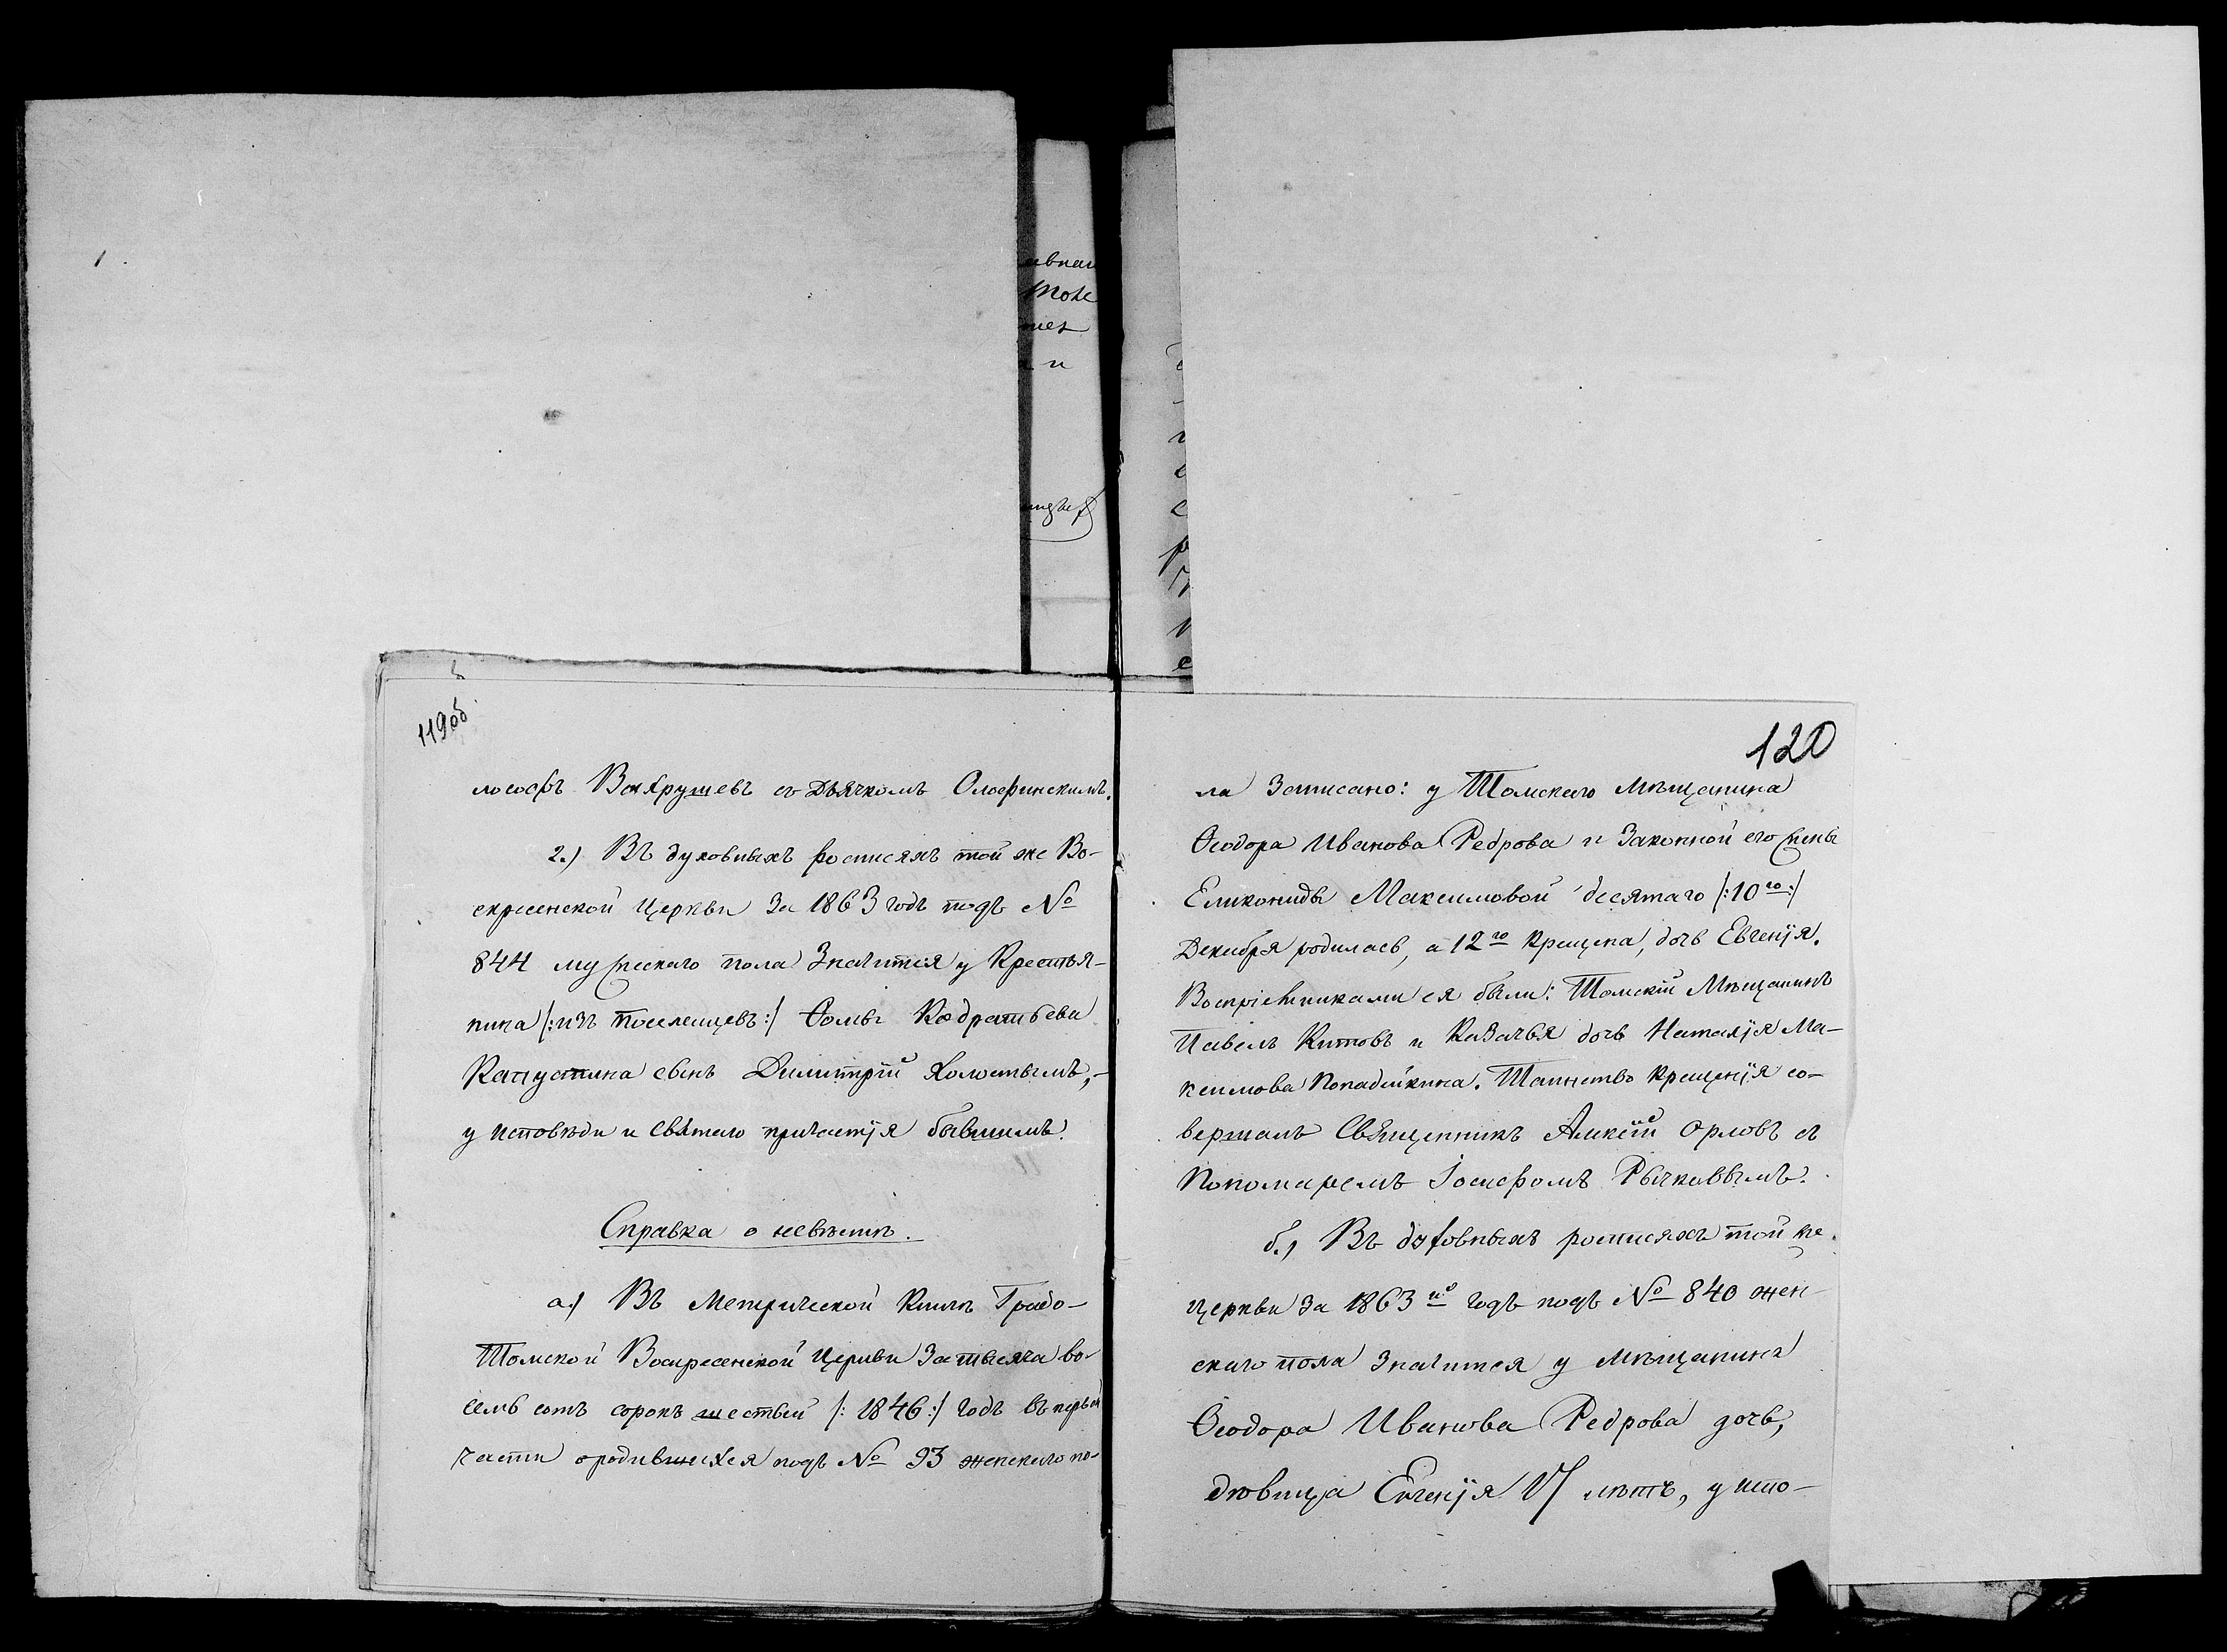 119об
лософъ Вахрушевъ съ Дьячкомъ Олофинскимъ.
2.) Въ духовныхъ росписяхъ той же Во-
скресенской Церкви За 1863 годъ подъ №
844 мужескаго пола Значится у Крестья-
нина /:изъ поселенцевъ:/ Ѳомы Кодратьева
Капустина сынъ Димитрій Холостымъ,-
у исповѣди и Святаго причастія бывшимъ.
Справка о невѣстѣ.
а.) Въ Метрической Книгѣ Градо-
Томской Воскресенской Церкви За тысяча во-
семь сотъ сорокъ шестый /:1846:/ годъ въ первой
части о родившихся подъ № 93 женскаго по-
120
ла Записано: у Томскаго Мѣщанина
Ѳеодора Иванова Редрова и Законной его жены
Еликониды Максимовой десятаго /:10го:/
Декабря родилась, а 12го крещена, дочь Евгенія.
Воспріемниками ея были: Томскій Мѣщанинъ
Павелъ Китовъ и Казачья дочь Наталія Ма-
ксимова Попадейкина. Таинство крещенія со-
вершалъ Священникъ Алексій Орловъ съ
Пономаремъ Іосифомъ Рычковымъ.
б.) Въ духовныхъ росписяхъ той же
церкви За 1863й годъ подъ № 840 жен-
скаго пола Значится у мѣщанина
Ѳеодора Иванова Редрова дочь,
дѣвица Евгенія 17 лѣтъ, у испо-